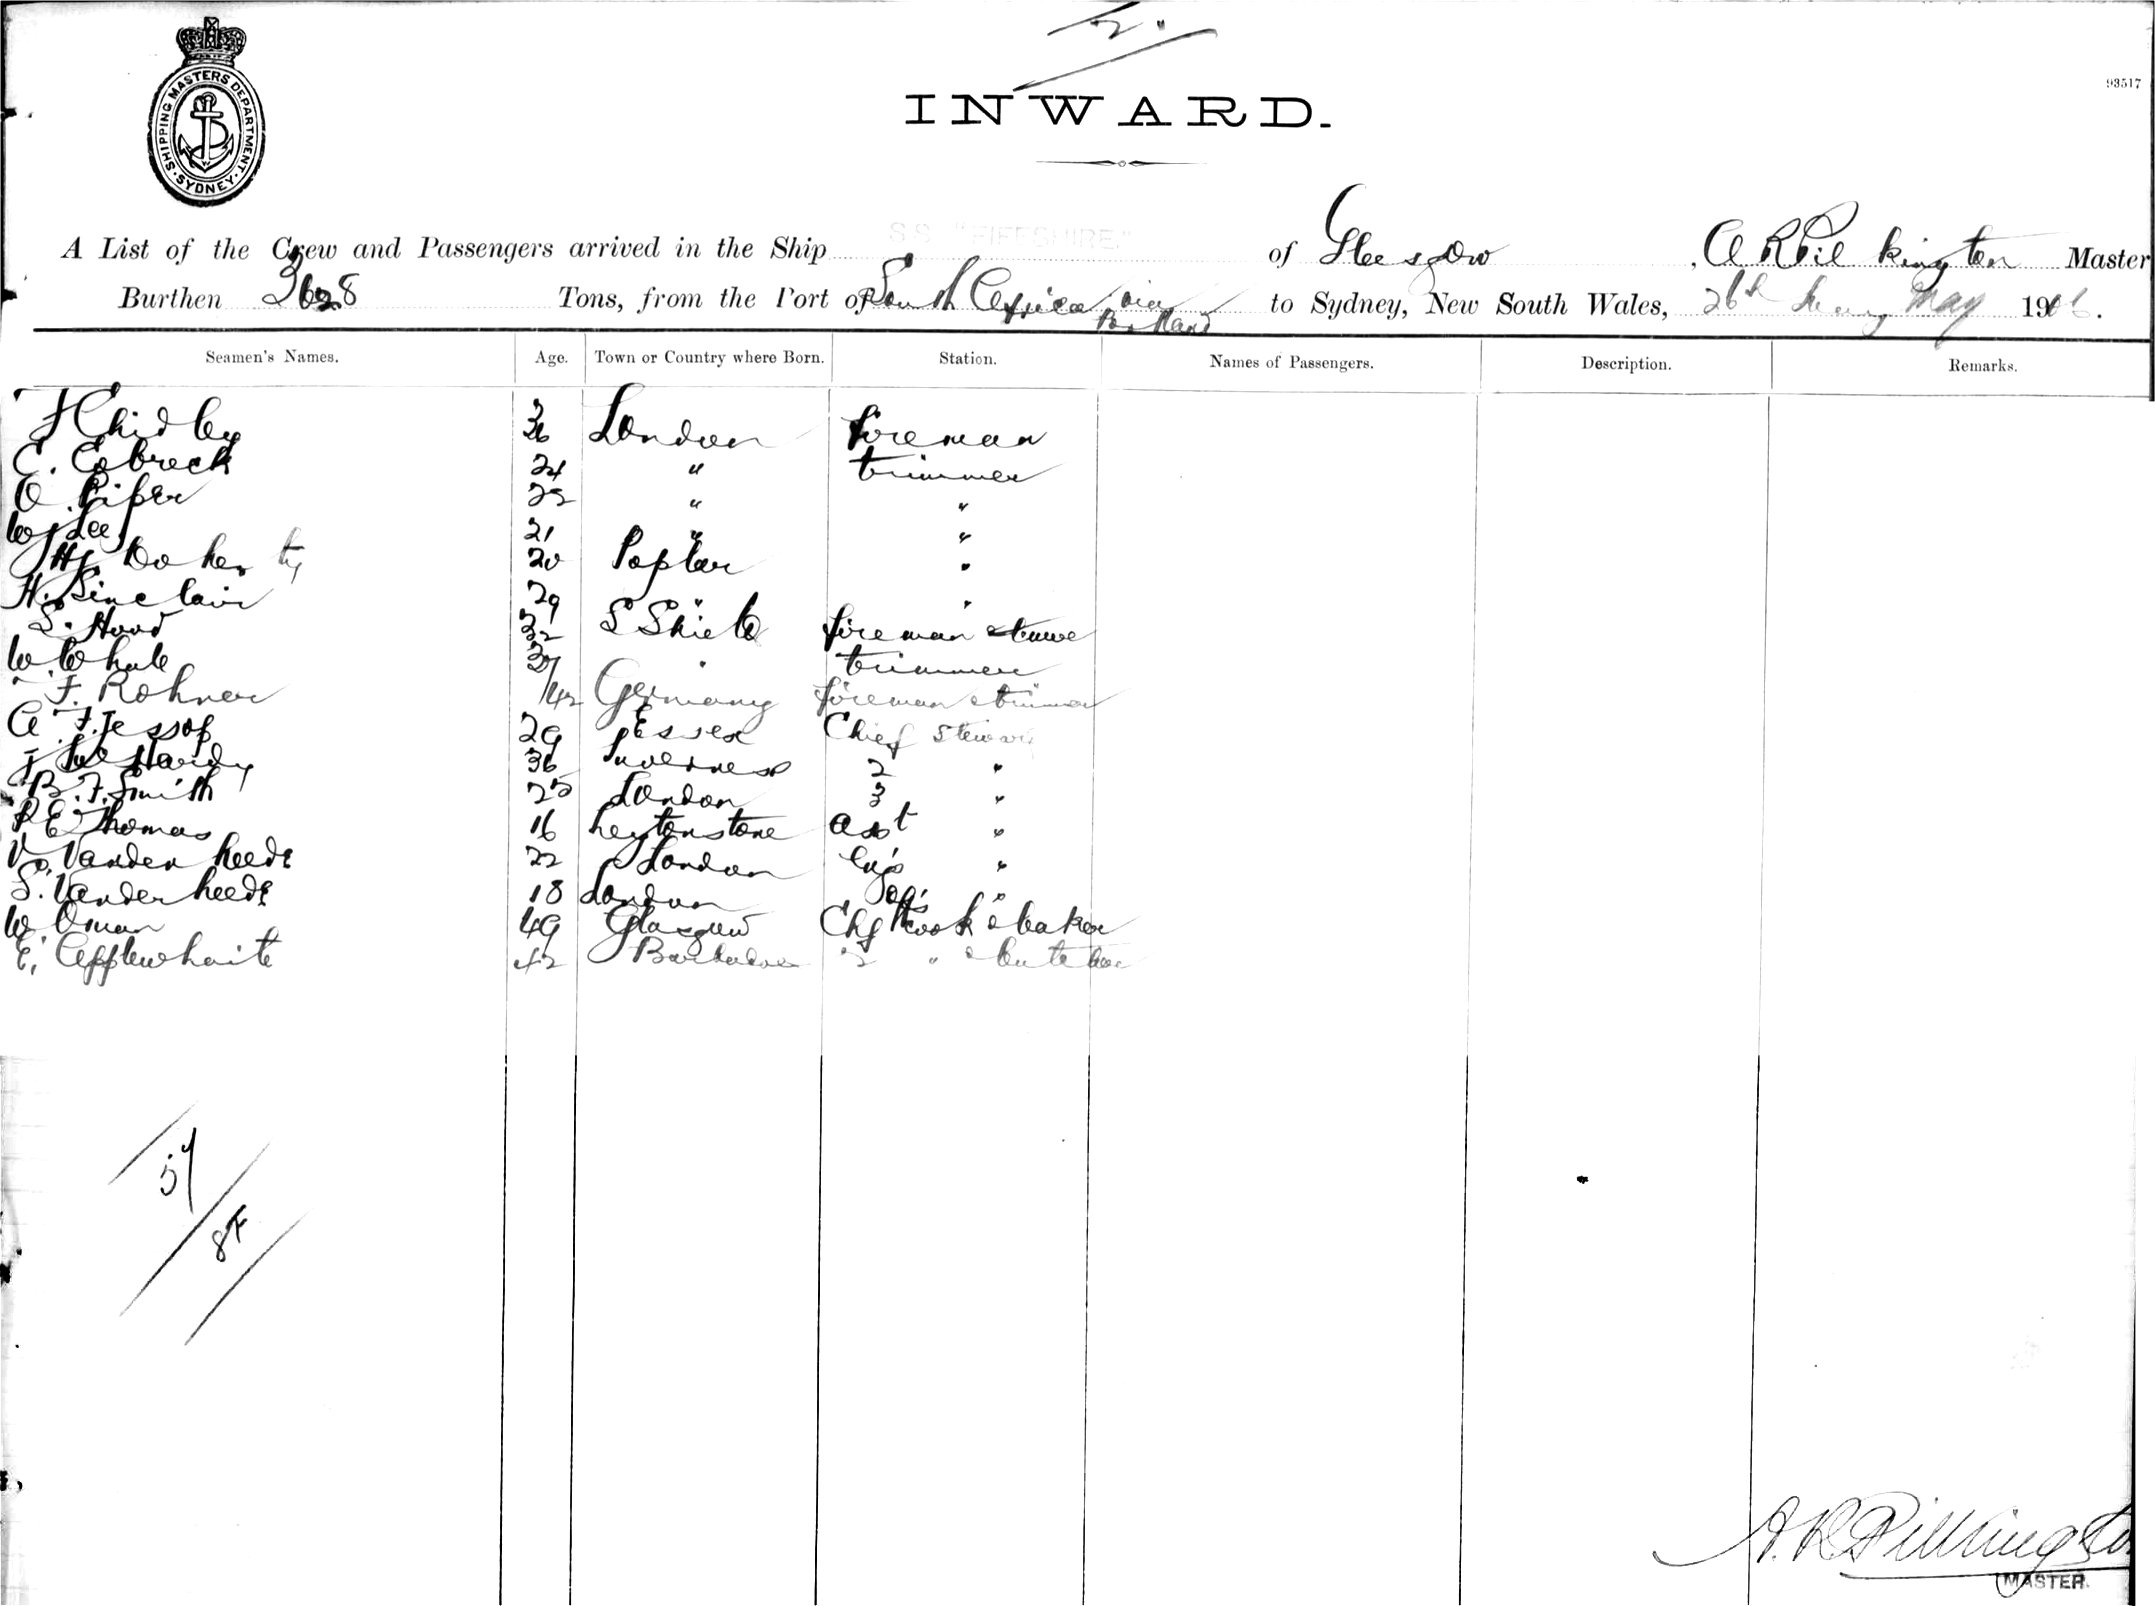 2.
INWARD.
93517
SHIPPING MASTERS DEPARTMENT. SYDNEY.
A List of the Crew and Passengers arrived in the Ship S.S. "FIFESHIRE" of Glasgow, A R Pilkington Master
Burthen 3628 Tons, from the Port of South Africa via to Sydney, New South Wales, 26th May 1906.
Seamen's Names. Age. Town or Country where Born. Station. Names of Passengers. Description. Remarks.
F Chidley 36 London fireman
E. 24 " trimmer
A. Piper 22 " "
W J Lee 21 " "
Doherty 20 Poplar "
H. Sinclair 29 " "
S. Hood 32 S Shields fireman
W. Whale " trimmer
F. Rohner 42 Germany fireman & trimmer
A. F. Jessop 29 Essex Chief Steward
J Hardy 36 Inverness 2 "
B. F. Smith 25 London 3 "
R E Thomas 16 Leytonstone asst "
V. Vanderheede 22 London "
S. Vanderheede 18 London "
W. Oman 49 Glasgow Chf cook & baker
E. Applewhaite 42 Barbados 2 " & butcher
57
8F
A. R. Pilkington
MASTER.